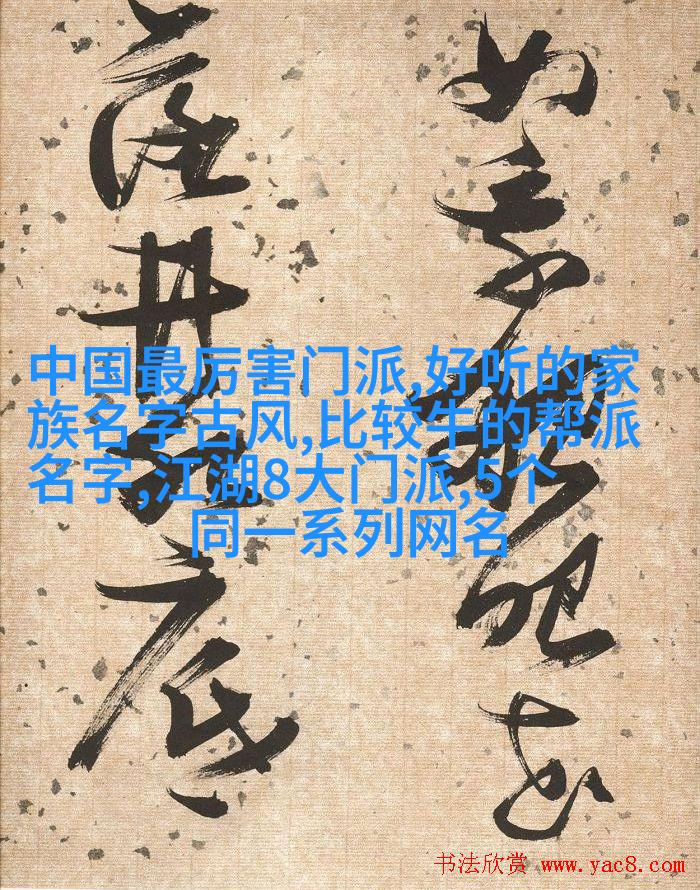 中国最厉害门派,好听的家
族名字古风,比较牛的帮派
名字,江湖8大门派,5个
同一系列网名
似乘船眼花
落井水底
书法欣赏 www.yac8.com